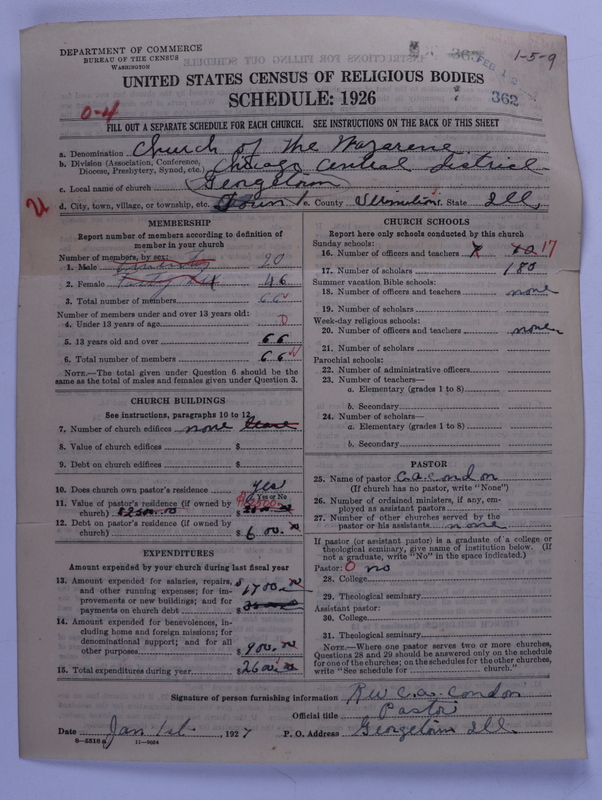 DEPARTMENT OF COMMERCE
BUREAU OF THE CENSUS
WASHINGTON
1-5-9
FEB
362
UNITED STATES CENSUS OF RELIGIOUS BODIES
SCHEDULE: 1926
0-4
FILL OUT A SEPARATE SCHEDULE FOR EACH CHURCH. SEE INSTRUCTIONS ON THE BACK OF THIS SHEET
a. Denomination Church of the Nazarene
b. Division (Association, Conference, Diocese, Presbytery, Synod, etc.) Chicago Central District
c. Local name of church Georgetown
d. City, town, village, or township, etc. Town e. County Vermilion f. State Ill
MEMBERSHIP
Report number of members according to definition of member in your church
Number of members, by sex:
1. Male 20
2. Female 46
3. Total number of members 66
Number of members under and over 13 years old:
4. Under 13 years of age 0
5. 13 years old and over 66
6. Total number of members 66
NOTE.—The total given under Question 6 should be the same as the total of males and females given under Question 3.
CHURCH BUILDINGS
See instructions, paragraphs 10 to 12
7. Number of church edifices none
8. Value of church edifices $
9. Debt on church edifices $
10. Does church own pastor's residence yes
Yes or No
11. Value of pastor's residence (if owned by church) $2500.00
12. Debt on pastor's residence (if owned by church) $600.00
EXPENDITURES
Amount expended by your church during last fiscal year
13. Amount expended for salaries, repairs, and other running expenses; for improvements or new buildings; and for payments on church debt $1700.00
14. Amount expended for benevolences, including home and foreign missions; for denominational support; and for all other purposes $900.00
15. Total expenditures during year $2600.00
CHURCH SCHOOLS
Report here only schools conducted by this church
Sunday schools:
16. Number of officers and teachers 17
17. Number of scholars 180
Summer vacation Bible schools:
18. Number of officers and teachers none
19. Number of scholars
Week-day religious schools:
20. Number of officers and teachers none
21. Number of scholars
Parochial schools:
22. Number of administrative officers
23. Number of teachers—
a. Elementary (grades 1 to 8)
b. Secondary
24. Number of scholars—
a. Elementary (grades 1 to 8)
b. Secondary
PASTOR
25. Name of pastor C.A. Condon
(If church has no pastor, write "None")
26. Number of ordained ministers, if any, employed as assistant pastors
27. Number of other churches served by the pastor or his assistants none
If pastor (or assistant pastor) is a graduate of a college or theological seminary, give name of institution below. (If not a graduate, write "No" in the space indicated.)
Pastor: 0 no
28. College
29. Theological seminary
Assistant pastor:
30. College
31. Theological seminary
NOTE.—Where one pastor serves two or more churches, Questions 28 and 29 should be answered only on the schedule for one of the churches; on the schedules for the other churches, write "See schedule for church."
Signature of person furnishing information Rev C.A. Condon
Official title Pastor
Date Jan 1st, 1927 P. O. Address Georgetown Ill
8-5518a 11-9064